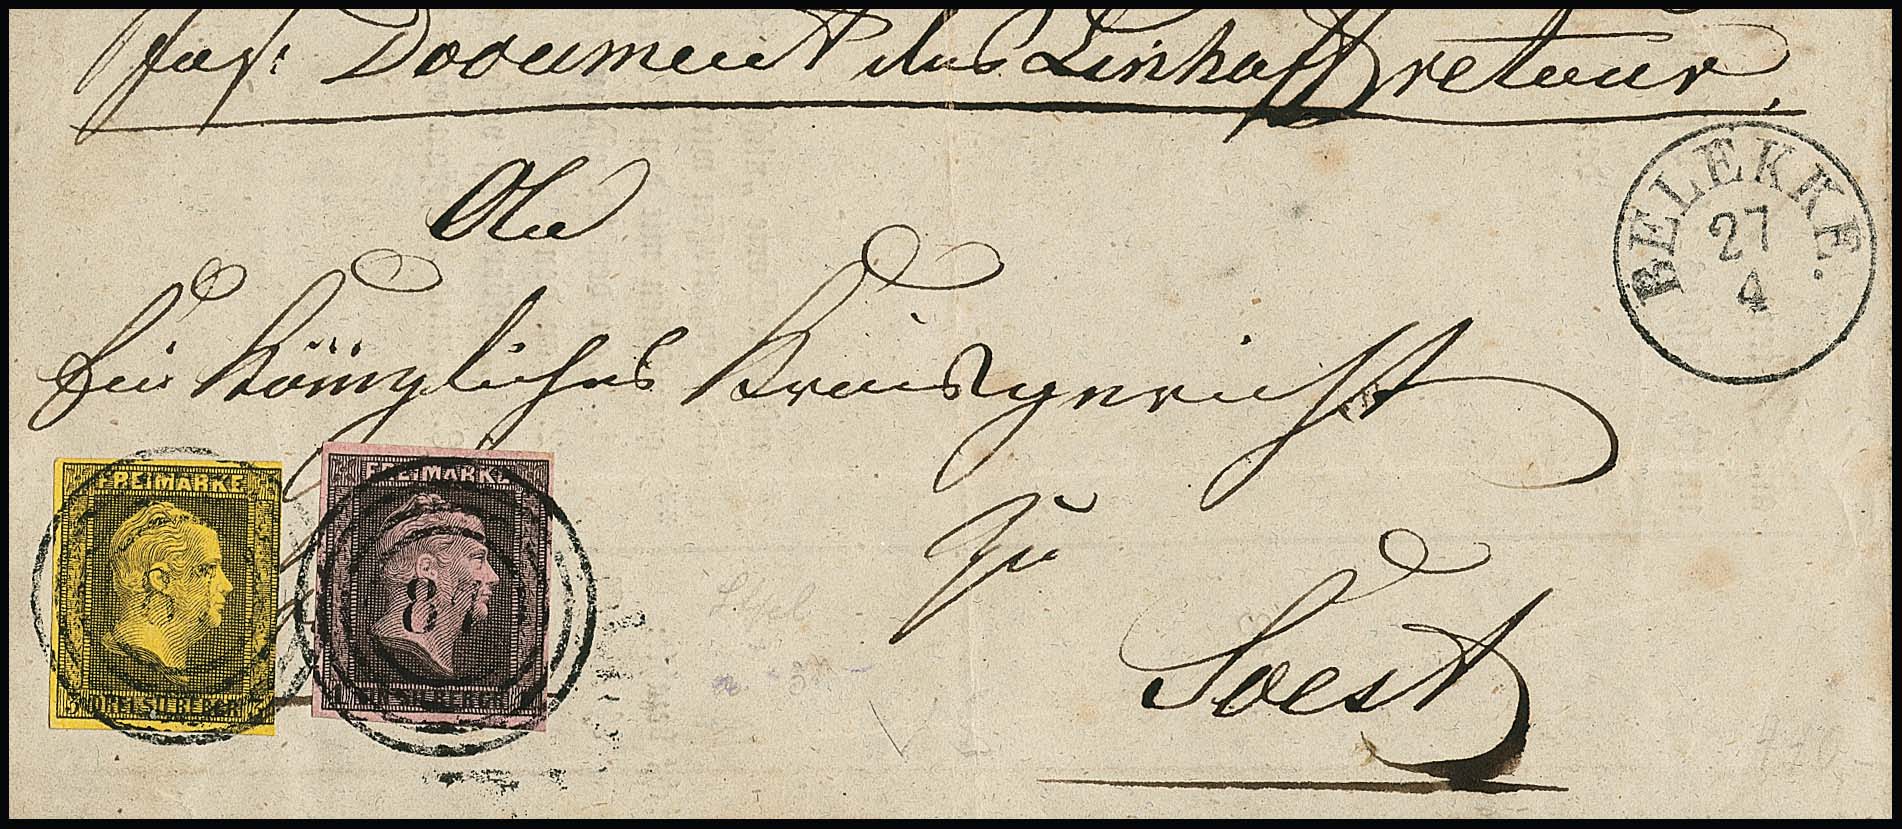 Document des Linhoff retour.
An
Ein Königliches Kreisgericht
zu
Soest
BELEKKE.
27
4
FREIMARKE
3 DREI SILBERGR. 3
FREIMARKE
SILBERGR.
8